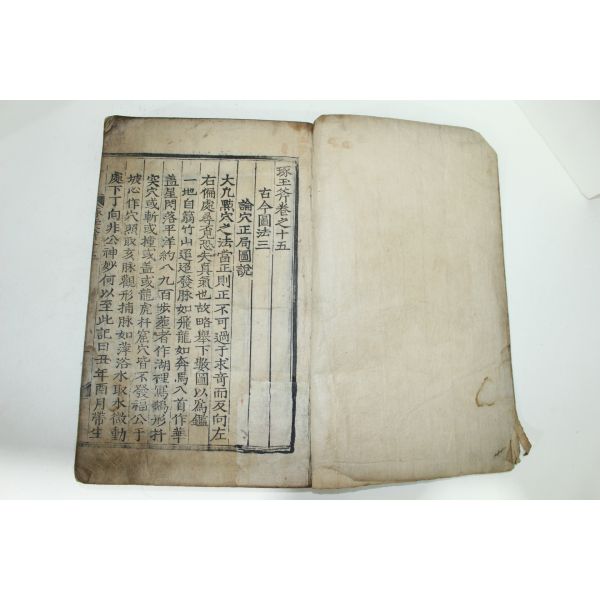 琢玉斧卷之十五
古今圖法三
論穴正局圖說
大凢㸃穴之法當正則正不可過于求奇而反向左
右偏處尋覔恐失真氣也故略舉下數圖以爲鑑
一地自翁竹山逕逕發脉如飛龍如奔馬入首作華
盖星閃落平洋約八九百步葬者作湖裡鴛鴦形扦
突穴或斬或撞或盖或龍虎扦窩穴皆不發福公于
坡心作穴照取亥脉觀形捕脉如萍浴水取水微動
處下丁向非公神妙何以至此記曰丑年酉月常生